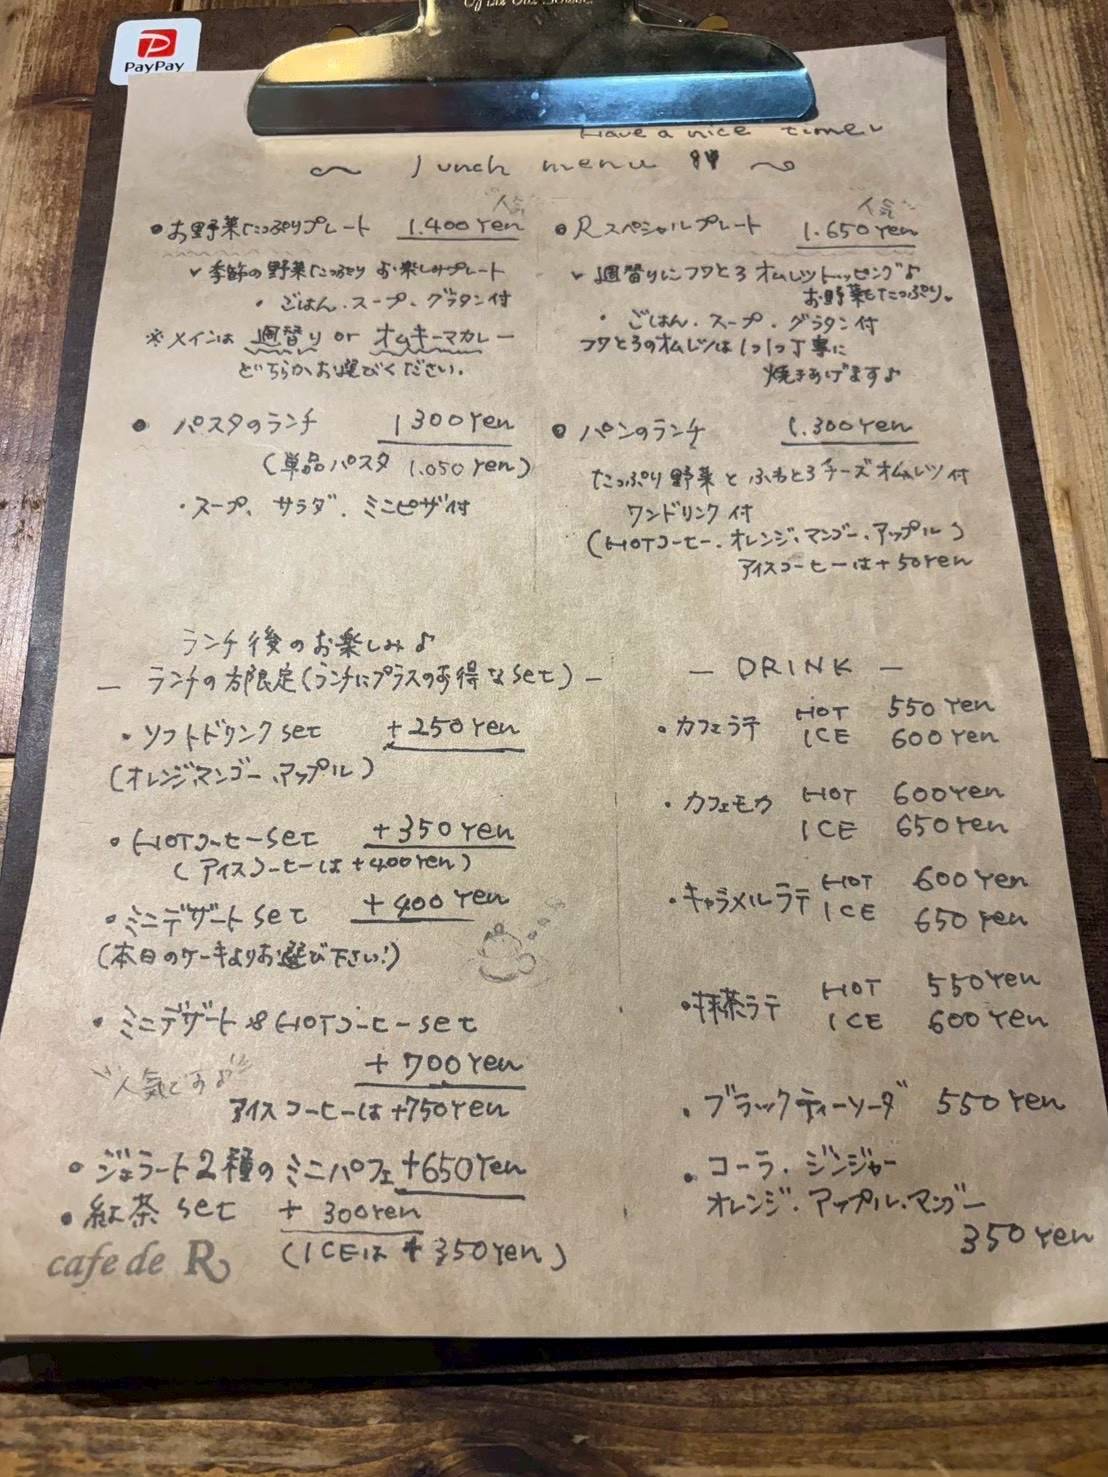 PayPay
Have a nice time♪
〜 lunch menu 〜
"人気"
・お野菜たっぷりプレート 1.400 Yen
✓ 季節の野菜たっぷり お楽しみプレート
・ごはん、スープ、グラタン付
※メインは 週替り or オムキーマカレー
どちらかお選びください。
・パスタのランチ 1300 Yen
(単品パスタ 1.050 Yen)
・スープ、サラダ、ミニピザ付
"人気"
・Rスペシャルプレート 1.650 Yen
✓ 週替りにフワとろ オムレツトッピング♪
お野菜もたっぷり。
・ごはん、スープ、グラタン付
フワとろのオムレツは1つ1つ丁寧に
焼きあげます♪
・パンのランチ 1.300 Yen
たっぷり野菜と ふわとろチーズオムレツ付
ワンドリンク付
(HOTコーヒー、オレンジ、マンゴー、アップル)
アイスコーヒーは+50yen
ランチ後のお楽しみ♪
― ランチの方限定(ランチにプラスのお得なset) ―
・ソフトドリンクset +250 Yen
(オレンジ、マンゴー、アップル)
・HOTコーヒーset +350 Yen
(アイスコーヒーは+400 Yen)
・ミニデザートset +400 Yen
(本日のケーキよりお選び下さい!)
・ミニデザート&HOTコーヒーset
+700 Yen
"人気です♪"
アイスコーヒーは+750yen
・ジェラート2種のミニパフェ+650 Yen
・紅茶set +300yen
(ICEは+350Yen)
cafe de R
― DRINK ―
・カフェラテ HOT 550 Yen
ICE 600 Yen
・カフェモカ HOT 600 Yen
ICE 650 Yen
・キャラメルラテ HOT 600 Yen
ICE 650 Yen
・抹茶ラテ HOT 550 Yen
ICE 600 Yen
・ブラックティーソーダ 550 Yen
・コーラ・ジンジャー
オレンジ・アップル・マンゴー
350 Yen